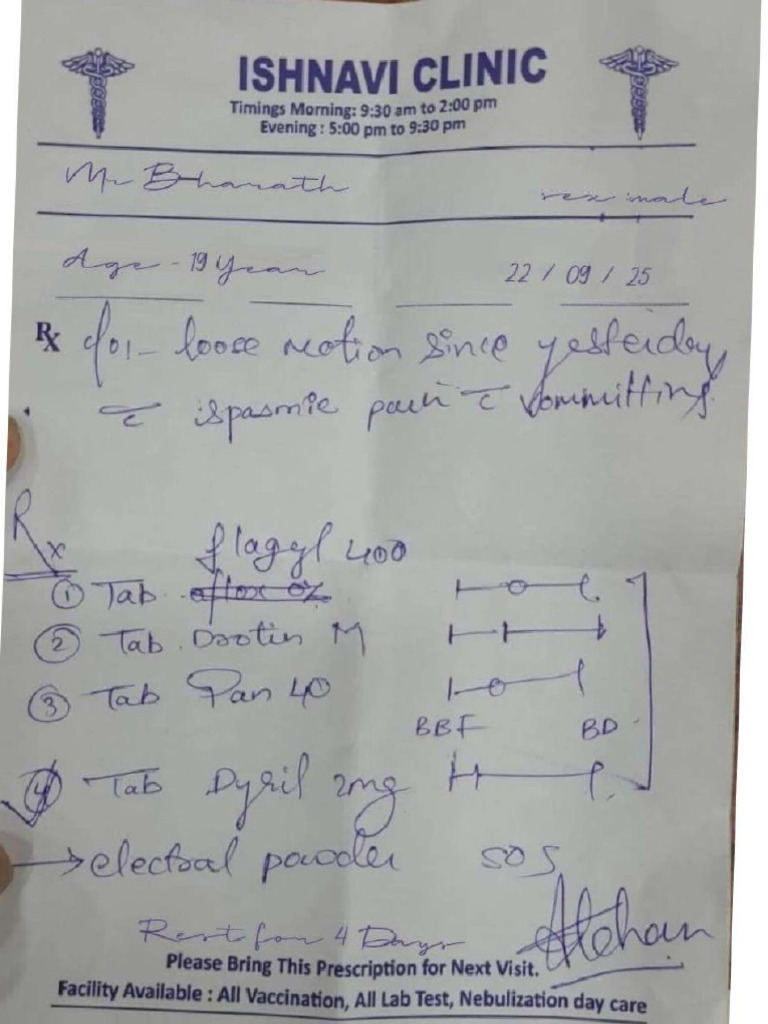 ISHNAVI CLINIC
Timings Morning: 9:30 am to 2:00 pm
Evening : 5:00 pm to 9:30 pm
Mr Bharath
sex male
Age - 19 Year
22 / 09 / 25
Rx c/o1- loose motion since yesterday
c̄ ispasmic pain c̄ vommitting
Rx
flagyl 400
① Tab oflox oz
② Tab M
③ Tab Pan 40
BBF BD
④ Tab 2mg
→ electral powder SOS
Rest for 4 Days
Please Bring This Prescription for Next Visit.
Facility Available : All Vaccination, All Lab Test, Nebulization day care